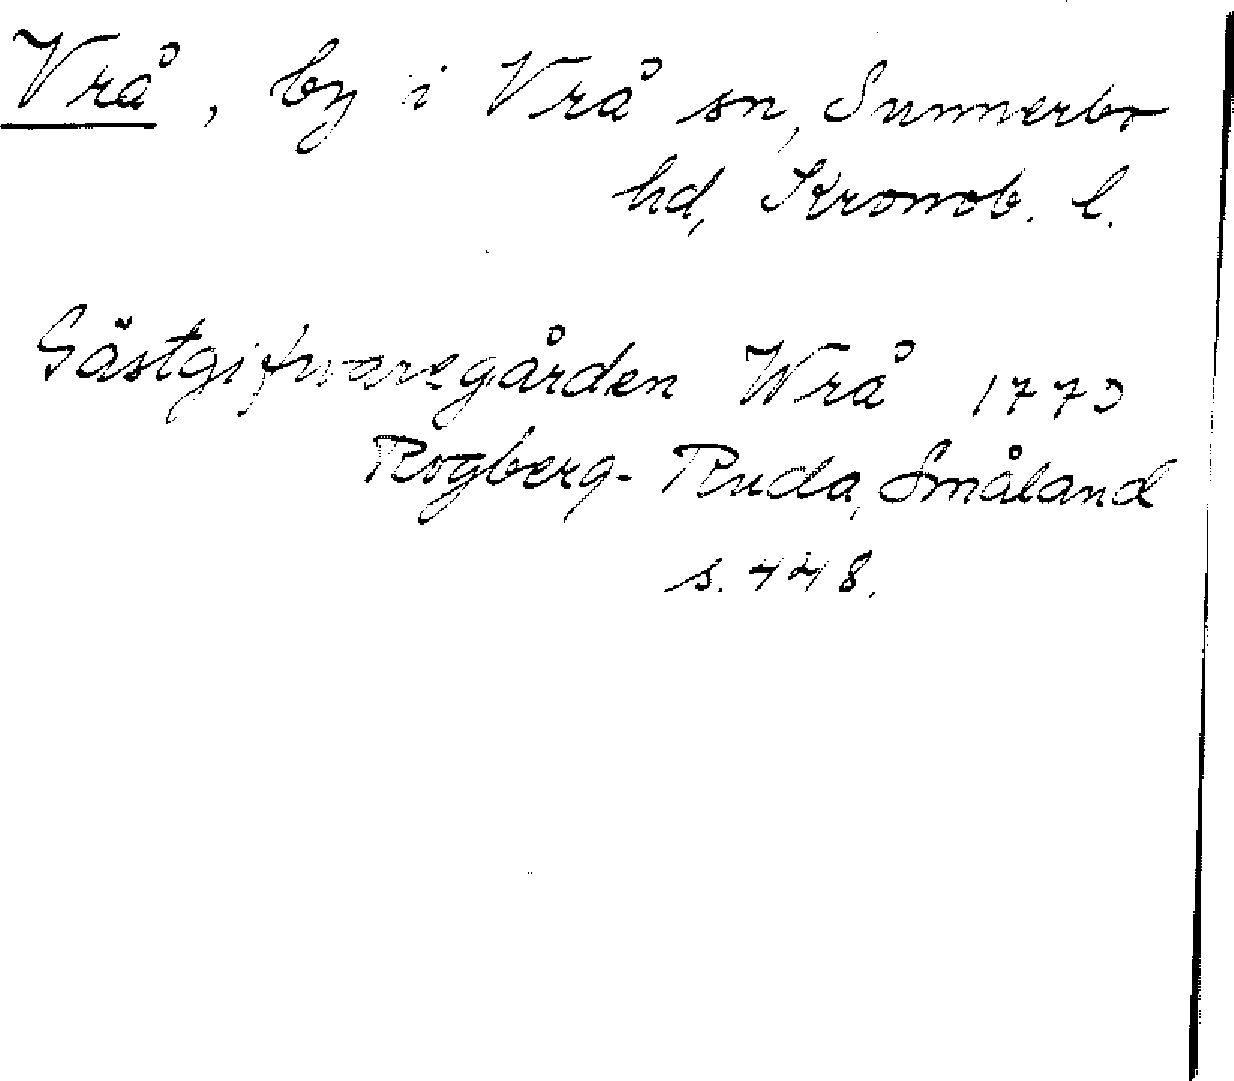 Vrå, by i Vrå sn, Sunnerbo
hd, Kronob. l.
Gästgifwaregården Wrå 1770
Rogberg-Ruda, Småland
s. 448.